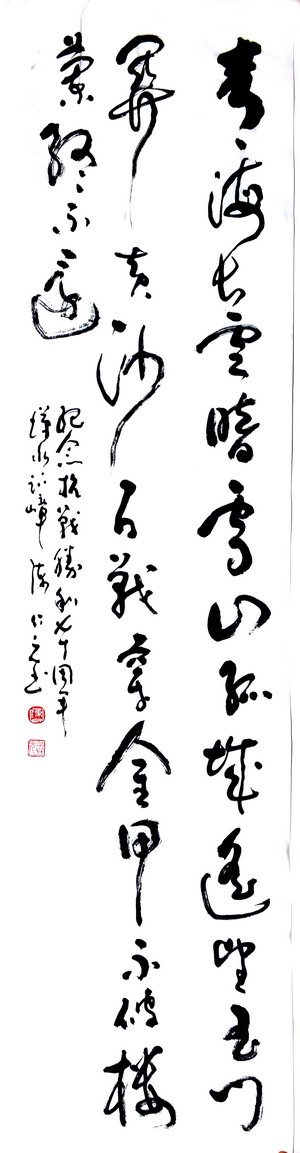 青海长雲暗雪山孤城遥望玉门
關黄沙百戰穿金甲不破楼
蘭终不還
纪念抗戰勝利七十周年